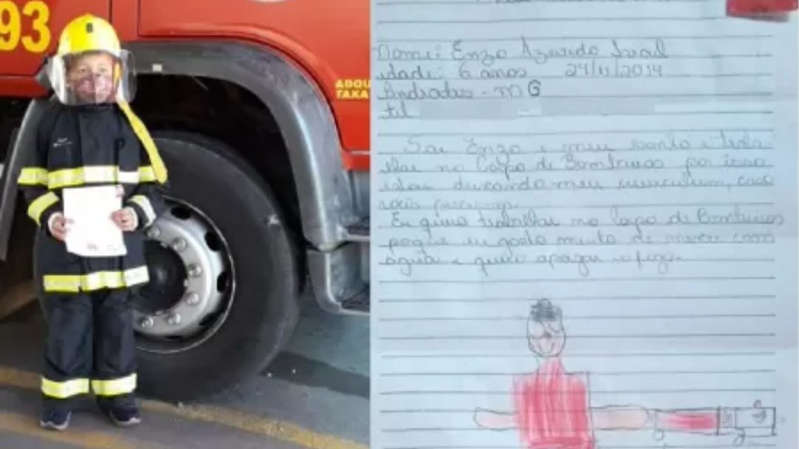 93
ADQU
TAKA
Nome: Enzo Azevedo
idade: 6 anos 24/11/2014
Andradas - MG
Sou Enzo e meu sonho e traba
lhar no Copo de Bombeiros por isso
estou deixando meu curriculum, caso
voces
Eu quero trabalhar no Copo de Bombeiros
poque eu gosto muito de mexer com
água e quero apagar o fogo.